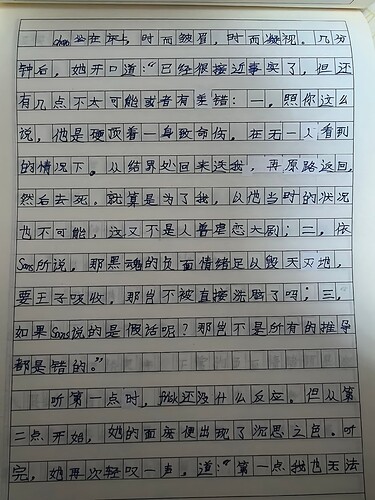 Chara坐在床上，时而皱眉，时而凝视。几分
钟后，她开口道：“已经很接近事实了，但还
有几点不太可能或者有差错：一，照你这么
说，他是硬顶着一身致命伤，在无一人看到
的情况下，从结界处回来送我，再原路返回，
然后去死。就算是为了我，以他当时的状况
也不可能，这又不是人兽虐恋大剧；二，依
Sans所说，那黑魂的负面情绪足以毁天灭地，
要王子吸收，那岂不被直接洗脑了吗；三，
如果Sans说的是假话呢？那岂不是所有的推导
都是错的。”
听第一点时，Frisk还没什么反应。但从第
二点开始，她的面庞便出现了沉思之色。听
完，她再次轻叹一声，道：“第一点我也无法